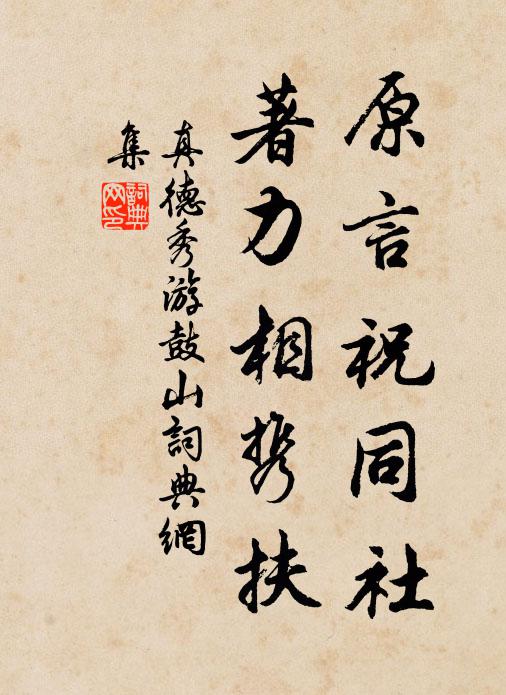 原言祝同社
著力相携扶
真德秀游鼓山詞典網
集
詞典網印